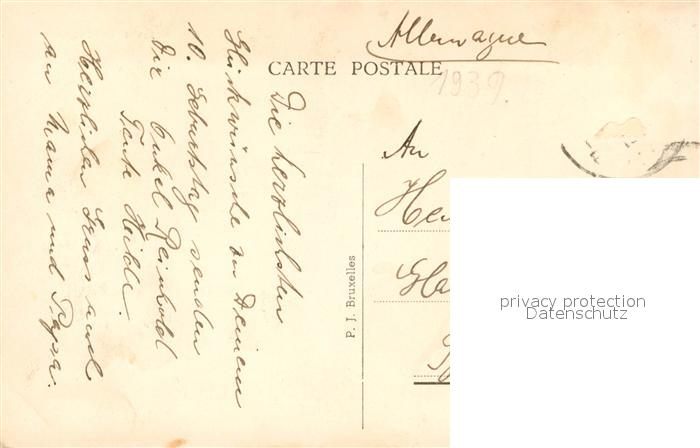 Allemagne
CARTE POSTALE
1939.
Die herzlichsten
Glückwünsche zu Deinem
10. Geburtstag senden
Dir Onkel Reinhold
Tante Heide.
Herzlichen Gruss auch
an Mama und Papa.
P. J. Bruxelles
An
privacy protection
Datenschutz